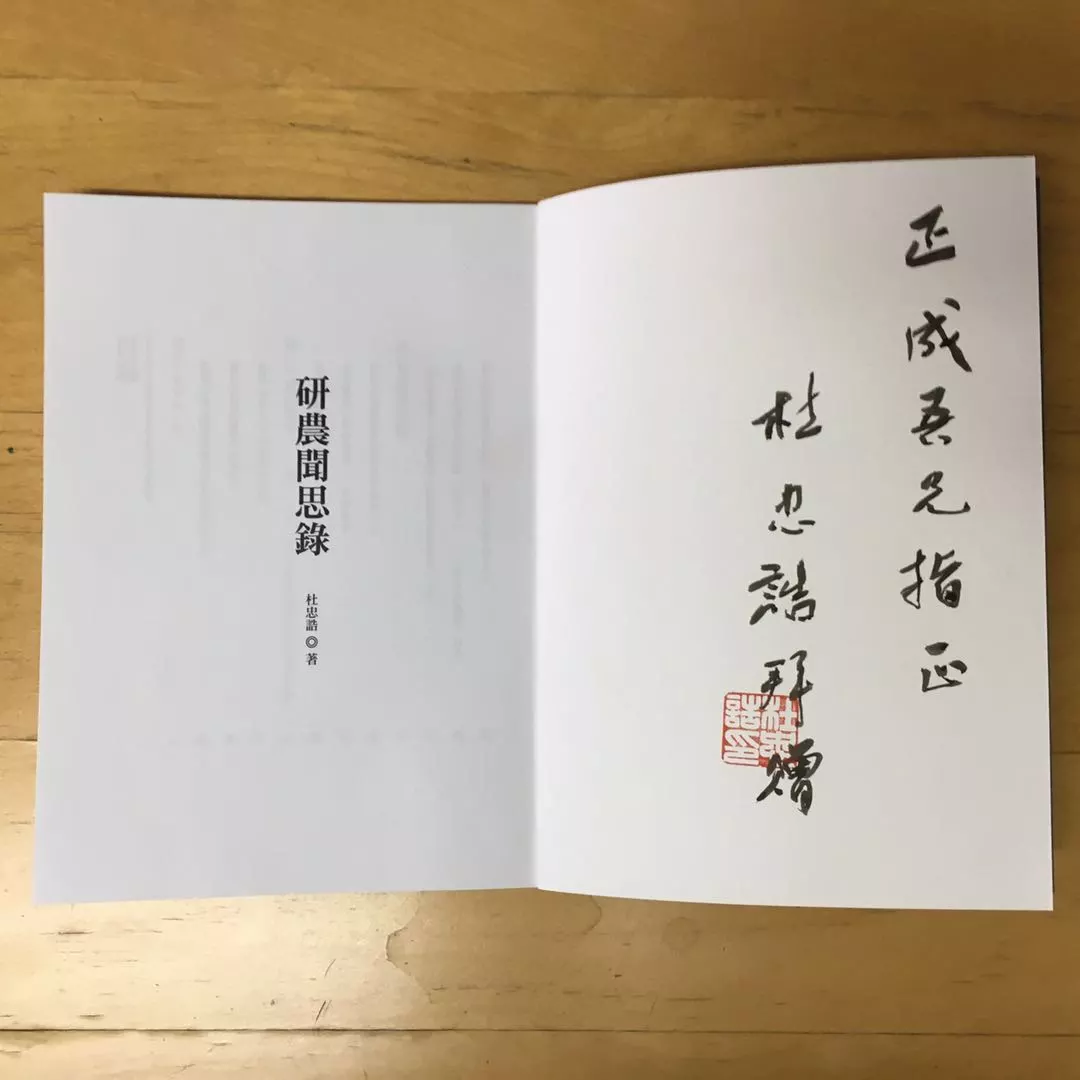 正成吾兄指正
杜忠誥拜贈
杜忠誥印
研農聞思錄
杜忠誥◎著